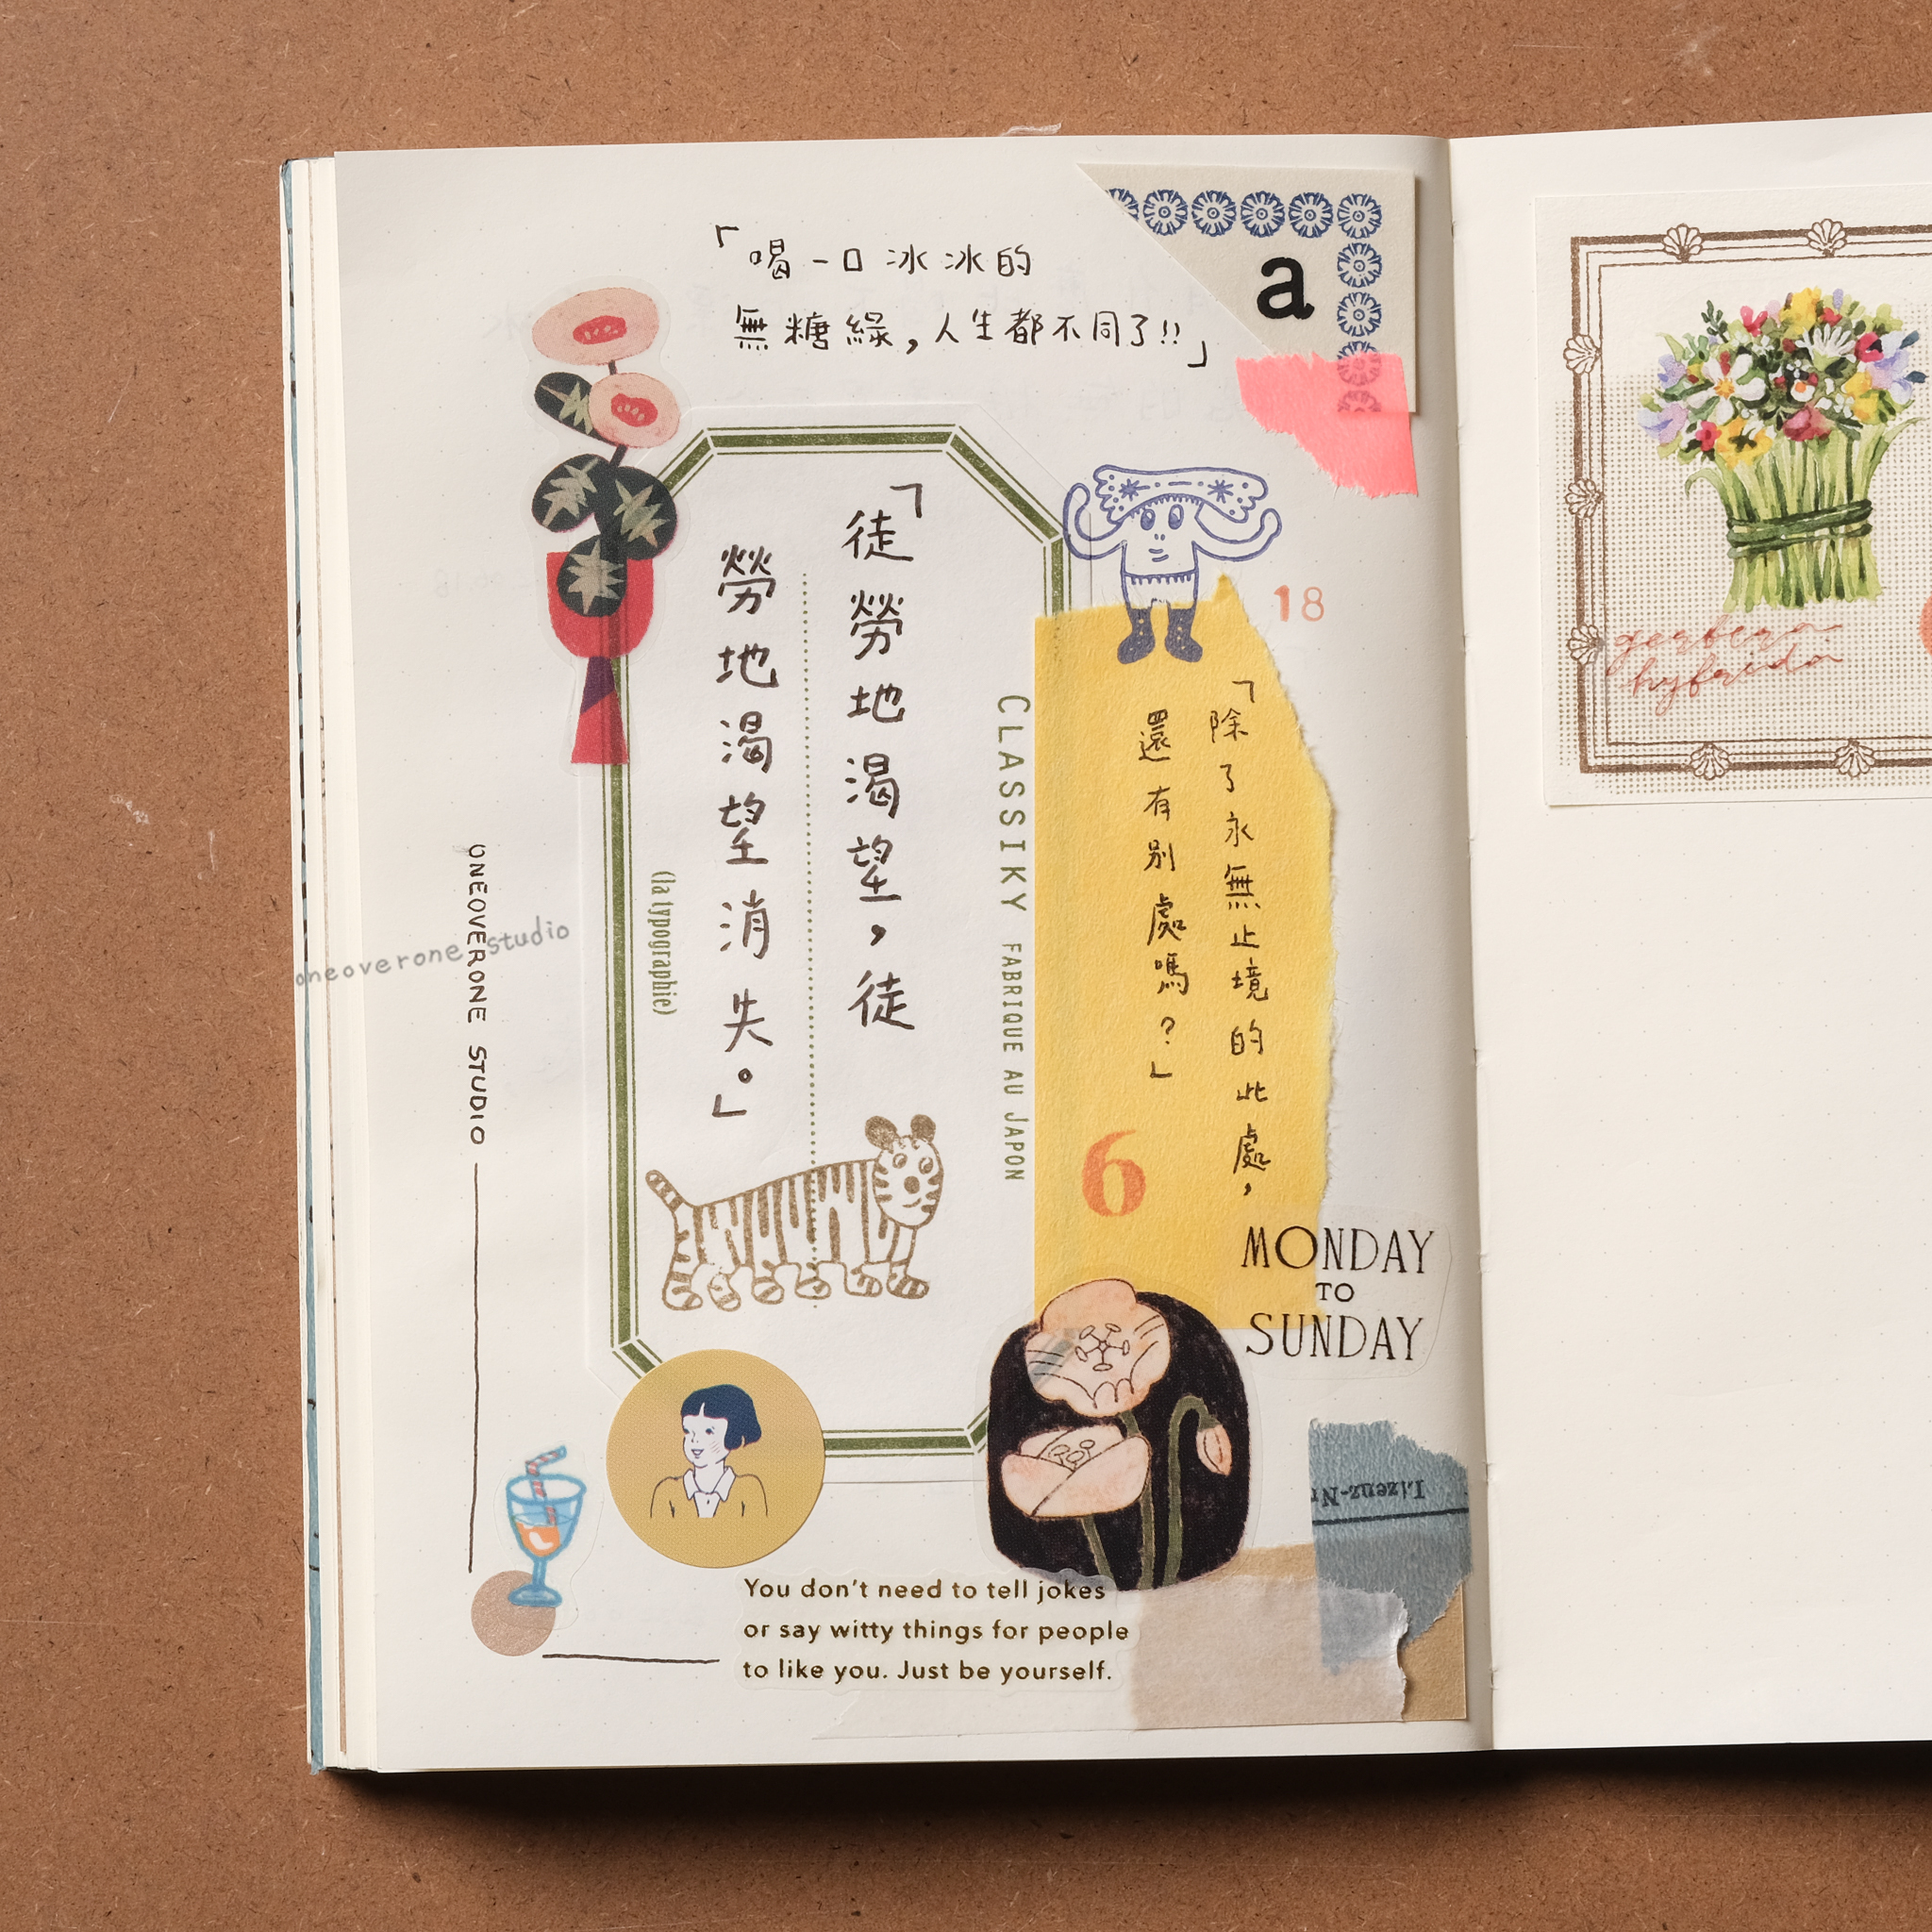 「喝一口冰冰的
無糖綠，人生都不同了!!」
a
「徒勞地渴望，徒
勞地渴望消失。」
(la typographie)
CLASSIKY FABRIQUE AU JAPON
18
「除了永無止境的此處，
還有別處嗎？」
6
MONDAY
TO
SUNDAY
ONEOVERONE STUDIO
oneoverone studio
Lizenz-Nr
You don't need to tell jokes
or say witty things for people
to like you. Just be yourself.
gerbera
hybrida